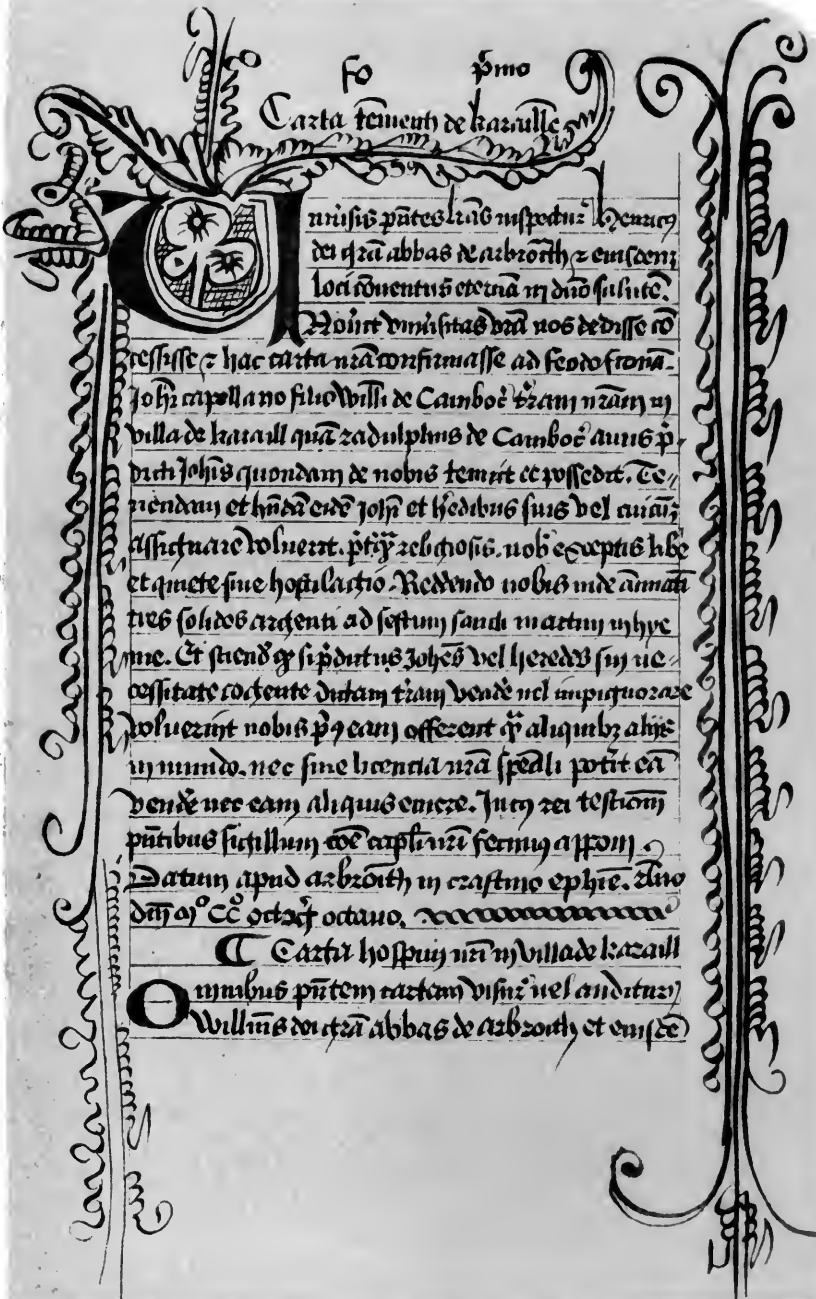 fo p̄mo
Carta teñenti de karaille
Uniũsis p̄ñtes l̄ras inspectur̄ henricꝰ
dei gr̄a abbas de arbroth̄ ⁊ eiusdem
loci cōuentus eternā in dn̄o salutē.
Nou̇it vniũsitas vr̄a nos dedisse cō
cessisse ⁊ hac carta nr̄a confirmasse ad feodofirmā.
Joh̄i capellano filio Will̄i de Camboc̄ t̄ram nr̄am in
villa de karaill quā radulphus de Camboc̄ auus p̄
dicti Joh̄is quondam de nobis tenuit et possedit. Te⸗
nendam et hn̄dā eidē Joh̄i et h̄edibus suis vel cuicūqꝫ
assignare voluerit. p̄t̄qꝫ religiosis. nob̄ exceptis libe
et quiete sine hostilagio. Reddendo nobis inde ānuati
tres solidos argenti ad festum sancti martini in hye
me. Et sciend̄ qꝫ si p̄dictus Joh̄es vel heredes sui ne⸗
cessitate cogente dictam t̄ram vend̄e uel inpignorare
voluerint nobis p̄ꝰ eam offerent qꝫ̄ aliquibꝫ alijs
in mundo. nec sine licencia nr̄a sp̄eali pot̄it eā
vend̄e nec eam aliquis emere. In cꝰ rei testiom̄
p̄ntibus sigillum cōe capl̄i nr̄i fecimꝰ apponi.
Datum apud arbroith̄ in crastino ephīe. Āno
dn̄i mº CCº octogº octauo.
¶ Carta hospicij nr̄i in villa de karaill
Omnibus p̄ntem cartam visur̄ uel auditurꝰ
Will̄ms dei gr̄a abbas de arbroith et eiusdē